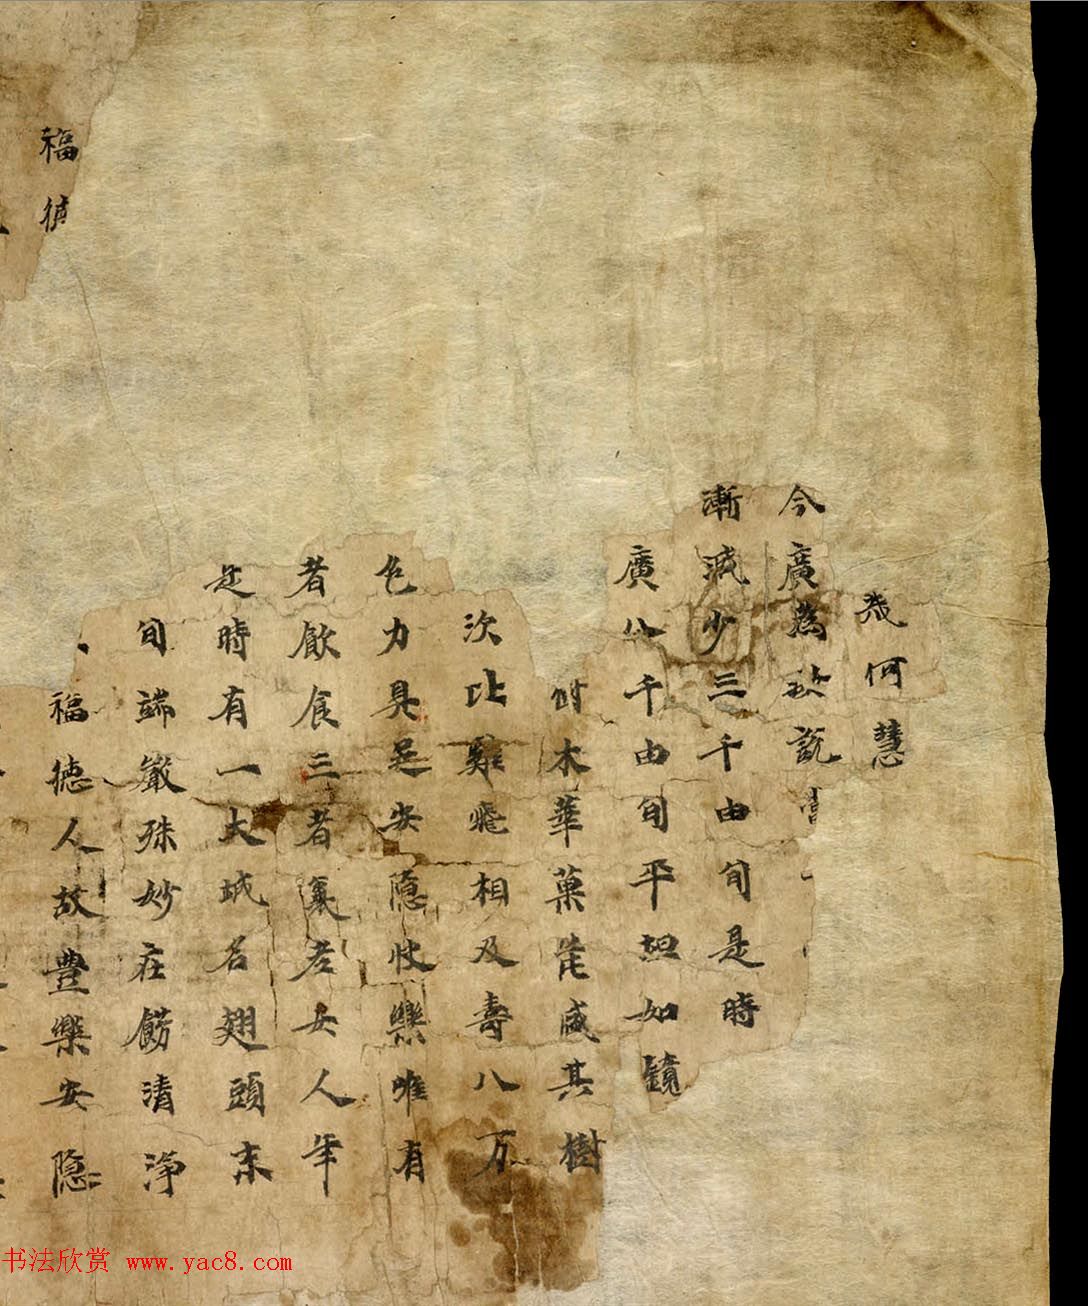 何慧
今廣為汝說
漸減少三千由旬是時
廣八千由旬平坦如鏡
樹木華菓茂盛其樹
次比雞飛相及壽八万
色力具足安隱快樂唯有
者飲食三者衰老女人年
是時有一大城名翅頭末
旬端嚴殊妙莊餝清淨
福德福德人故豊樂安隱
书法欣赏 www.yac8.com